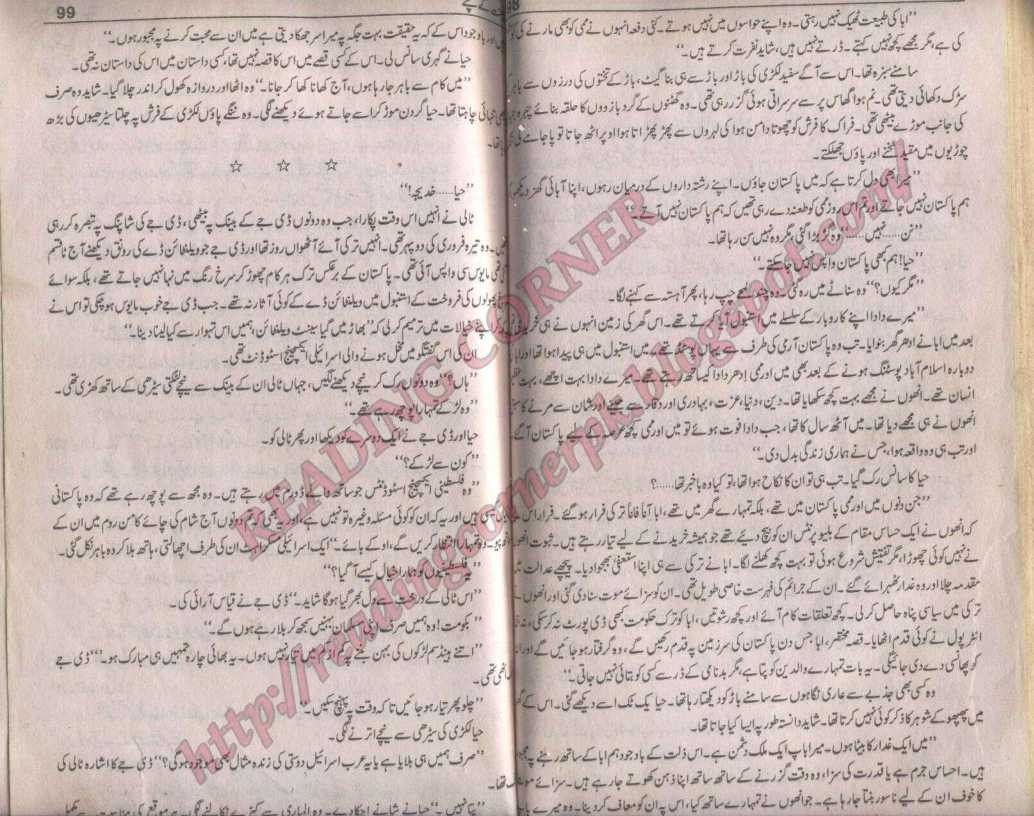 98
"ابا کی طبیعت ٹھیک نہیں رہتی۔ وہ اپنے حواسوں میں نہیں ہوتے۔ کئی دفعہ انہوں نے ممی کو بھی مارنے کی
کی ہے، مگر مجھے کچھ نہیں کہتے۔ ڈرتے نہیں ہیں، شاید نفرت کرتے ہیں۔"
سامنے سبزہ تھا۔ اس سے آگے سفید لکڑی کی باڑ اور باڑ سے ہی بنا گیٹ، باڑ کے تختوں کی درزوں سے باہر
سڑک دکھائی دیتی تھی۔ نم ہوا گھاس پر سے سرسراتی ہوئی گزر رہی تھی۔ وہ گھٹنوں کے گرد بازوؤں کا حلقہ بنائے چہرہ
کی جانب موڑے بیٹھی تھی۔ فراک کا فرش کو چھوتا دامن ہوا کی لہروں سے پھڑپھڑاتا ہوا اوپر اٹھ جاتا تو پاجامے کی
چوڑیوں میں مقید ٹخنے اور پاؤں جھلکتے۔
"میرا بھی دل کرتا ہے کہ میں پاکستان جاؤں۔ اپنے رشتہ داروں کے درمیان رہوں، اپنا آبائی گھر دیکھوں
ہم پاکستان نہیں جاتے اور تم اس روز ممی کو طعنہ دے رہی تھیں کہ ہم پاکستان نہیں آتے۔"
"نن.....نہیں....." وہ گڑبڑا گئی مگر وہ نہیں سن رہا تھا۔
"حیا! ہم کبھی پاکستان واپس نہیں جا سکتے۔"
"مگر کیوں؟" وہ سناٹے میں رہ گئی۔ وہ چند لمحے چپ رہا، پھر آہستہ سے کہنے لگا۔
"میرے دادا اپنے کاروبار کے سلسلے میں استنبول آیا کرتے تھے۔ اس گھر کی زمین انہوں نے ہی خریدی
بعد میں ابا نے ادھر گھر بنوایا۔ تب وہ پاکستان آرمی کی طرف سے یہاں پوسٹڈ تھے۔ میں استنبول میں ہی پیدا ہوا تھا اور ابا
دوبارہ اسلام آباد پوسٹنگ ہونے کے بعد بھی میں اور ممی ادھر دادا کیساتھ رہتے تھے۔ میرے دادا بہت اچھے، بہت
انسان تھے۔ انھوں نے مجھے بہت کچھ سکھایا تھا۔ دین، دنیا، عزت، بہادری اور وقار سے جینے اور شان سے مرنے کا
انھوں نے ہی مجھے دیا تھا۔ میں آٹھ سال کا تھا، جب دادا فوت ہوئے تو میں اور ممی کچھ عرصہ کے لیے پاکستان آگئے
اور تب ہی وہ واقعہ ہوا، جس نے ہماری زندگی بدل دی۔"
حیا کا سانس رک گیا۔ تب ہی تو ان کا نکاح ہوا تھا، تو کیا وہ باخبر تھا.....؟
"جن دنوں میں اور ممی پاکستان میں تھے، بلکہ تمہارے گھر میں تھے، ابا آناً فاناً ترکی فرار ہو گئے۔ فرار اس
کہ انھوں نے ایک حساس مقام کے بلیو پرنٹس ان کو بیچ دیئے تھے جو ہمیشہ خریدنے کے لیے تیار رہتے ہیں۔ ثبوت انھوں
نے نہیں کوئی چھوڑا، مگر تفتیش شروع ہوئی تو بہت کچھ کھلنے لگا۔ ابا نے ترکی سے ہی اپنا استعفیٰ بھجوا دیا۔ پیچھے عدالت میں
مقدمہ چلا اور وہ غدار ٹھہرائے گئے۔ ان کے جرائم کی فہرست خاصی طویل تھی۔ ان کو سزائے موت سنا دی گئی اور انھوں
ترکی میں سیاسی پناہ حاصل کر لی۔ کچھ تعلقات کام آئے اور کچھ رشوتیں، ابا کو ترک حکومت کبھی ڈی پورٹ نہ کر سکی، نہ
انٹر پول نے کوئی قدم اٹھایا۔ قصہ مختصر، ابا جس دن پاکستان کی سرزمین پہ قدم رکھیں گے، وہ گرفتار ہو جائیں گے اور
کو پھانسی دے دی جائیگی۔ یہ بات تمہارے والدین کو پتا ہے، مگر بدنامی کے ڈر سے کسی کو بتائی نہیں جاتی۔"
وہ کسی بھی جذبے سے عاری نگاہوں سے سامنے باڑ کو دیکھتا رہا تھا۔ حیا یک ٹک اسے دیکھے گئی۔ اس کے گھر
میں پھپھو کے شوہر کا ذکر کوئی نہیں کرتا تھا۔ شاید دانستہ طور پہ ایسا کیا جاتا تھا۔
"میں ایک غدار کا بیٹا ہوں۔ میرا باپ ایک ملک دشمن ہے۔ اس ذلت کے باوجود ہم ابا کے ساتھ رہنے پہ مجبور
ہیں۔ احساس جرم ہے یا قدرت کی سزا، وہ وقت گزرنے کے ساتھ ساتھ اپنا ذہن کھوتے جا رہے ہیں۔ سزائے موت
کا خوف ان کے لیے ناسور بنتا جا رہا ہے۔ جو انھوں نے میرے ساتھ کیا، اس پہ ان کو معاف کر دینا۔ وہ میرے باپ
99
باوجود اس کے کہ یہ حقیقت بہت جگہ پہ میرا سر جھکا دیتی ہے میں ان سے محبت کرنے پہ مجبور ہوں۔"
حیا نے گہری سانس لی۔ اس کے کسی قصے میں اس کا قصہ نہیں تھا، کسی داستان میں اس کی داستان نہ تھی۔
"میں کام سے باہر جا رہا ہوں، آج کھانا کھا کر جانا۔" وہ اٹھا اور دروازہ کھول کر اندر چلا گیا۔ شاید وہ صرف
تنہائی چاہتا تھا۔ حیا گردن موڑ کر اسے جاتے ہوئے دیکھنے لگی۔ وہ ننگے پاؤں لکڑی کے فرش پہ چلتا سیڑھیوں کی بڑھ
رہا تھا۔
☆ ☆ ☆
"حیا.....خدیجہ!"
ٹالی نے انہیں اس وقت پکارا، جب وہ دونوں ڈی جے کے بینک پہ بیٹھی، ڈی جے کی شاپنگ پہ تبصرہ کر رہی
تھیں۔ وہ تیرہ فروری کی دوپہر تھی۔ انہیں ترکی آئے آٹھواں روز تھا اور ڈی جے جو ویلنٹائن ڈے کی رونق دیکھنے آج تاقسم
گئی تھی مایوس سی واپس آئی تھی۔ پاکستان کے برعکس ترک ہر کام چھوڑ کر سرخ رنگ میں نہا نہیں جاتے تھے، بلکہ سوائے
پھولوں کی فروخت کے استنبول میں ویلنٹائن ڈے کے کوئی آثار نہ تھے۔ جب ڈی جے خوب مایوس ہو چکی تو اس نے
اپنے خیالات میں ترمیم کر لی کہ "بھاڑ میں گیا سینٹ ویلنٹائن، ہمیں اس تہوار سے کیا لینا دینا۔"
ان کی اس گفتگو میں مخل ہونے والی اسرائیلی ایکسچینج اسٹوڈنٹ تھی۔
"ہاں؟" وہ دونوں رک کر نیچے دیکھنے لگیں، جہاں ٹالی ان کے بینک سے نیچے لٹکتی سیڑھی کے ساتھ کھڑی تھی۔
"وہ لڑکے تمہارا پوچھ رہے تھے۔"
حیا اور ڈی جے نے ایک دوسرے کو دیکھا اور پھر ٹالی کو۔
"کون سے لڑکے؟"
"وہ فلسطینی ایکسچینج اسٹوڈنٹس جو ساتھ والے ڈورم میں رہتے ہیں۔ وہ مجھ سے پوچھ رہے تھے کہ وہ پاکستانی
کیسی ہیں اور یہ کہ ان کو کوئی مسئلہ وغیرہ تو نہیں ہے، اور یہ بھی کہ تم دونوں آج شام کی چائے کامن روم میں ان کے
ساتھ پیو۔ وہ تمہارا انتظار کریں گے، اوکے بائے۔" ایک اسرائیلی مسکراہٹ ان کی طرف اچھالتی، ہاتھ ہلا کر وہ باہر نکل گئی۔
"یہ فلسطینیوں کو ہمارا خیال کیسے آگیا؟"
"اس ٹالی کے درخت سے دل بھر گیا ہوگا شاید۔" ڈی جے نے قیاس آرائی کی۔
"بکومت! وہ ہمیں صرف اپنی مسلمان بہنیں سمجھ کر بلا رہے ہوں گے۔"
"اتنے ہینڈسم لڑکوں کی بہن بننے پہ کم از کم میں تیار نہیں ہوں۔ یہ بھائی چارہ تمہیں ہی مبارک ہو۔" ڈی جے
اٹھی تھی۔
"چلو پھر تیار ہو جائیں تاکہ وقت پہ پہنچ سکیں۔"
حیا لکڑی کی سیڑھی سے نیچے اترنے لگی۔
"صرف ہمیں ہی بلایا ہے یا یہ عرب اسرائیل دوستی کی زندہ مثال بھی موجود ہوگی؟" ڈی جے کا اشارہ ٹالی کی
تھا۔
"پتا نہیں۔" حیا نے شانے اچکا دیے۔ وہ الماری سے کپڑے نکالنے لگی۔
READING CORNER
http://readingcornerpk.blogspot.com/